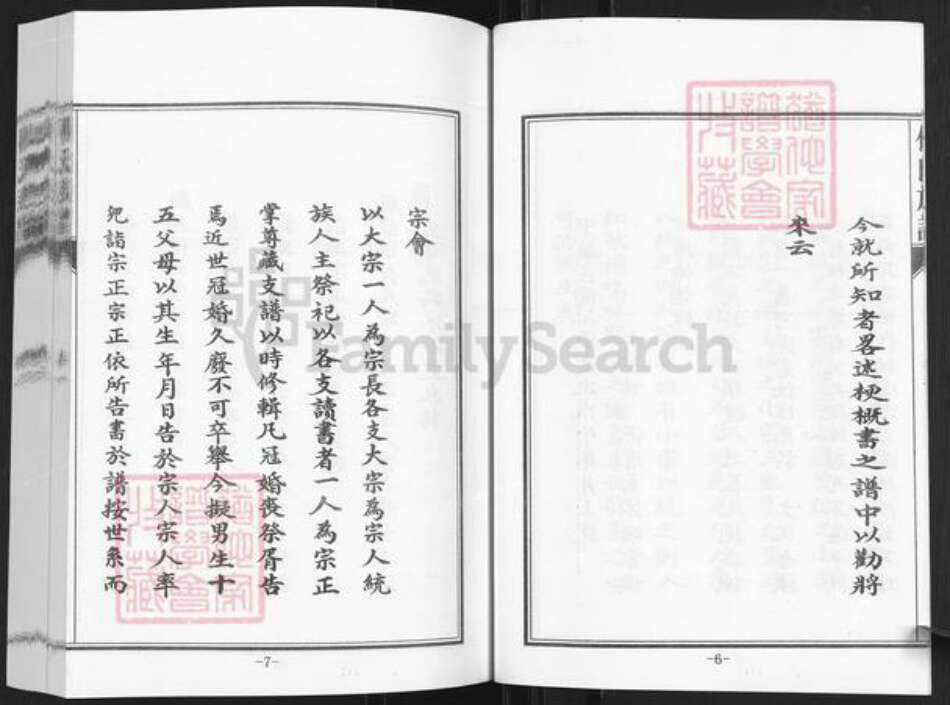 今就所知者畧述梗概書之譜中以勸將
來云
-6-
宗會
以大宗一人為宗長各支大宗為宗人統
族人主祭祀以各支讀書者一人為宗正
掌尊藏支譜以時修輯凡冠婚喪祭胥告
焉近世冠婚久廢不可卒舉今擬男生十
五父母以其生年月日告於宗人宗人率
兒詣宗正宗正依所告書於譜按世系而
-7-
譜學會
收藏
FamilySearch